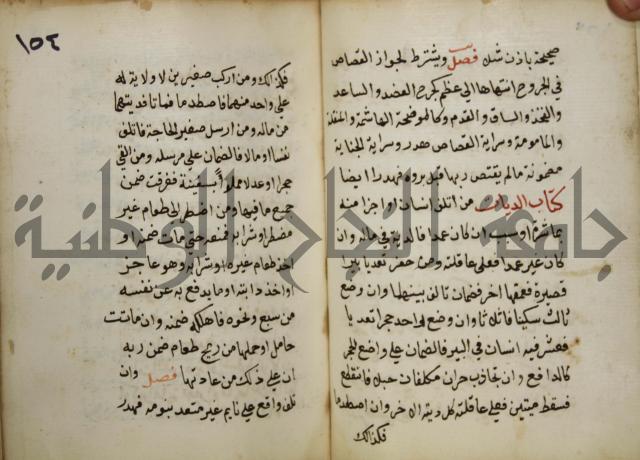 صحيحة باذن شل فصل ويشترط لجواز القصاص
في الجروح انتهاها الى عظم كجرح العضد والساعد
والفخذ والساق والقدم وكالموضحة الهاشمة والمنقلة
والمامومة وسراية القصاص هدر وسراية الجناية
مضمونة مالم يقتص ربها قبل بروه فهدر ايضا
كتاب الديات من اتلف انسان او جزا منه
بمباشرة او سبب ان كان عمدا فالدية في ماله وان
كان غير عمد فعلى عاقلته ومن حفر تعديا بيرا
قصيرة فعمقها اخر فضمان تالف بينهما وان وضع
ثالث سكينا فاثلاثا وان وضع واحد حجرا تعديا
فعثر فيه انسان في البير فالضمان على واضع الحجر
كالدافع وان تجاذب حران مكلفان حبلا فانقطع
فسقط ميتين فعلى عاقلته كل دية الاخر وان اصطدما
فكذالك
١٥٤
فكذالك ومن اركب صغيرين لا ولاية له
على واحد منهما فاصطدما فماتا فديتهما
من ماله ومن ارسل صغير لحاجة فاتلف
نفسا او مالا فالضمان على مرسله ومن القى
حجرا او عدلا مملوا بسفينة فغرقت ضمن
جميع ما فيها ومن اضطر الى طعام غير
مضطر او شرابه فمنعه حتى مات ضمنه او
اخذ طعام غيره او شرابه وهو عاجز
او اخذ دابته او ما يدفع به عن نفسه
من سبع ونحوه فاهلكه ضمنه وان ماتت
حامل او حملها من ريح طعام ضمن ربه
ان علم ذلك من عادتها فصل وان
تلف واقع على نايم غير متعد بنومه فهدر
جامعة النجاح الوطنية